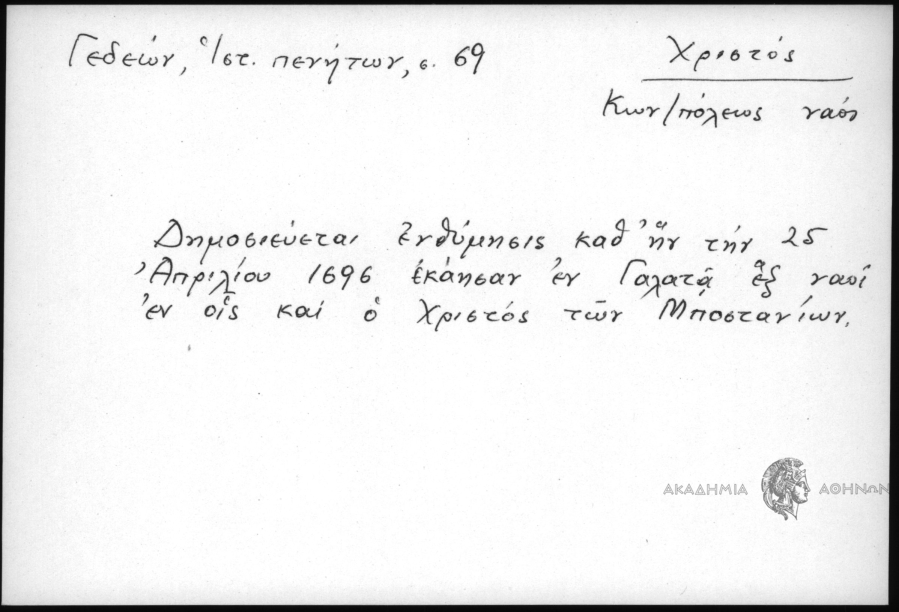 Γεδεών, Ἱστ. πενήτων, σ. 69
Χριστός
Κων/πόλεως ναός
Δημοσιεύεται ἐνθύμησις καθ' ἥν τήν 25
Ἀπριλίου 1696 ἐκάησαν ἐν Γαλατᾷ ἓξ ναοί
ἐν οἷς καί ὁ Χριστός τῶν Μποστανίων.
ΑΚΑΔΗΜΙΑ ΑΘΗΝΩΝ